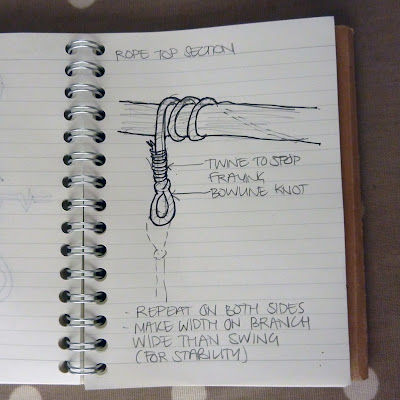 ROPE TOP SECTION
TWINE TO STOP
FRAYING
BOWLINE KNOT
- REPEAT ON BOTH SIDES
- MAKE WIDTH ON BRANCH
WIDE THAN SWING
(FOR STABILITY)